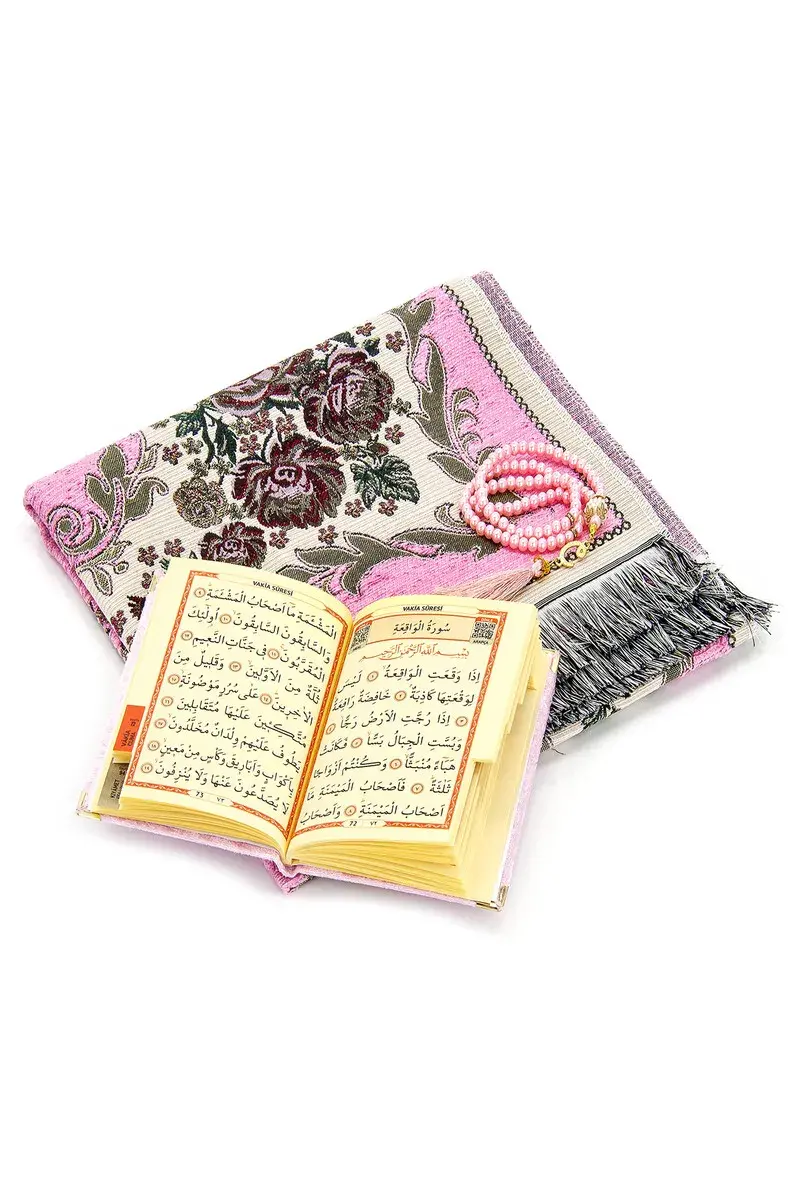 VAKİA SÛRESİ
سُورَةُ الْوَاقِعَةِ
ARAPÇA
بِسْمِ اللّٰهِ الرَّحْمٰنِ الرَّحِيمِ
اِذَا وَقَعَتِ الْوَاقِعَةُۙ ١ لَيْسَ
لِوَقْعَتِهَا كَاذِبَةٌۢ ٢ خَافِضَةٌ رَافِعَةٌۙ
٣ اِذَا رُجَّتِ الْاَرْضُ رَجًّاۙ ٤
وَبُسَّتِ الْجِبَالُ بَسًّاۙ ٥ فَكَانَتْ
هَبَٓاءً مُنْبَثًّاۙ ٦ وَكُنْتُمْ اَزْوَاجًا
ثَلٰثَةًۜ ٧ فَاَصْحَابُ الْمَيْمَنَةِ مَٓا
اَصْحَابُ الْمَيْمَنَةِۜ ٨ وَاَصْحَابُ
72 ٧٢
VAKİA SÛRESİ
الْمَشْـَٔمَةِ مَٓا اَصْحَابُ الْمَشْـَٔمَةِۜ ٩
وَالسَّابِقُونَ السَّابِقُونَۙ ١٠ اُو۬لٰٓئِكَ
الْمُقَرَّبُونَۚ ١١ فِي جَنَّاتِ النَّعِيمِ ١٢
ثُلَّةٌ مِنَ الْاَوَّلِينَۙ ١٣ وَقَلِيلٌ مِنَ
الْاٰخِرِينَۜ ١٤ عَلٰى سُرُرٍ مَوْضُونَةٍۙ ١٥
مُتَّكِـِٔينَ عَلَيْهَا مُتَقَابِلِينَ ١٦
يَطُوفُ عَلَيْهِمْ وِلْدَانٌ مُخَلَّدُونَۙ ١٧
بِاَكْوَابٍ وَاَبَارِيقَ وَكَأْسٍ مِنْ مَعِينٍۙ ١٨
لَا يُصَدَّعُونَ عَنْهَا وَلَا يُنْزِفُونَۙ ١٩
73 ٧٣
VAKİA
KIYAMET